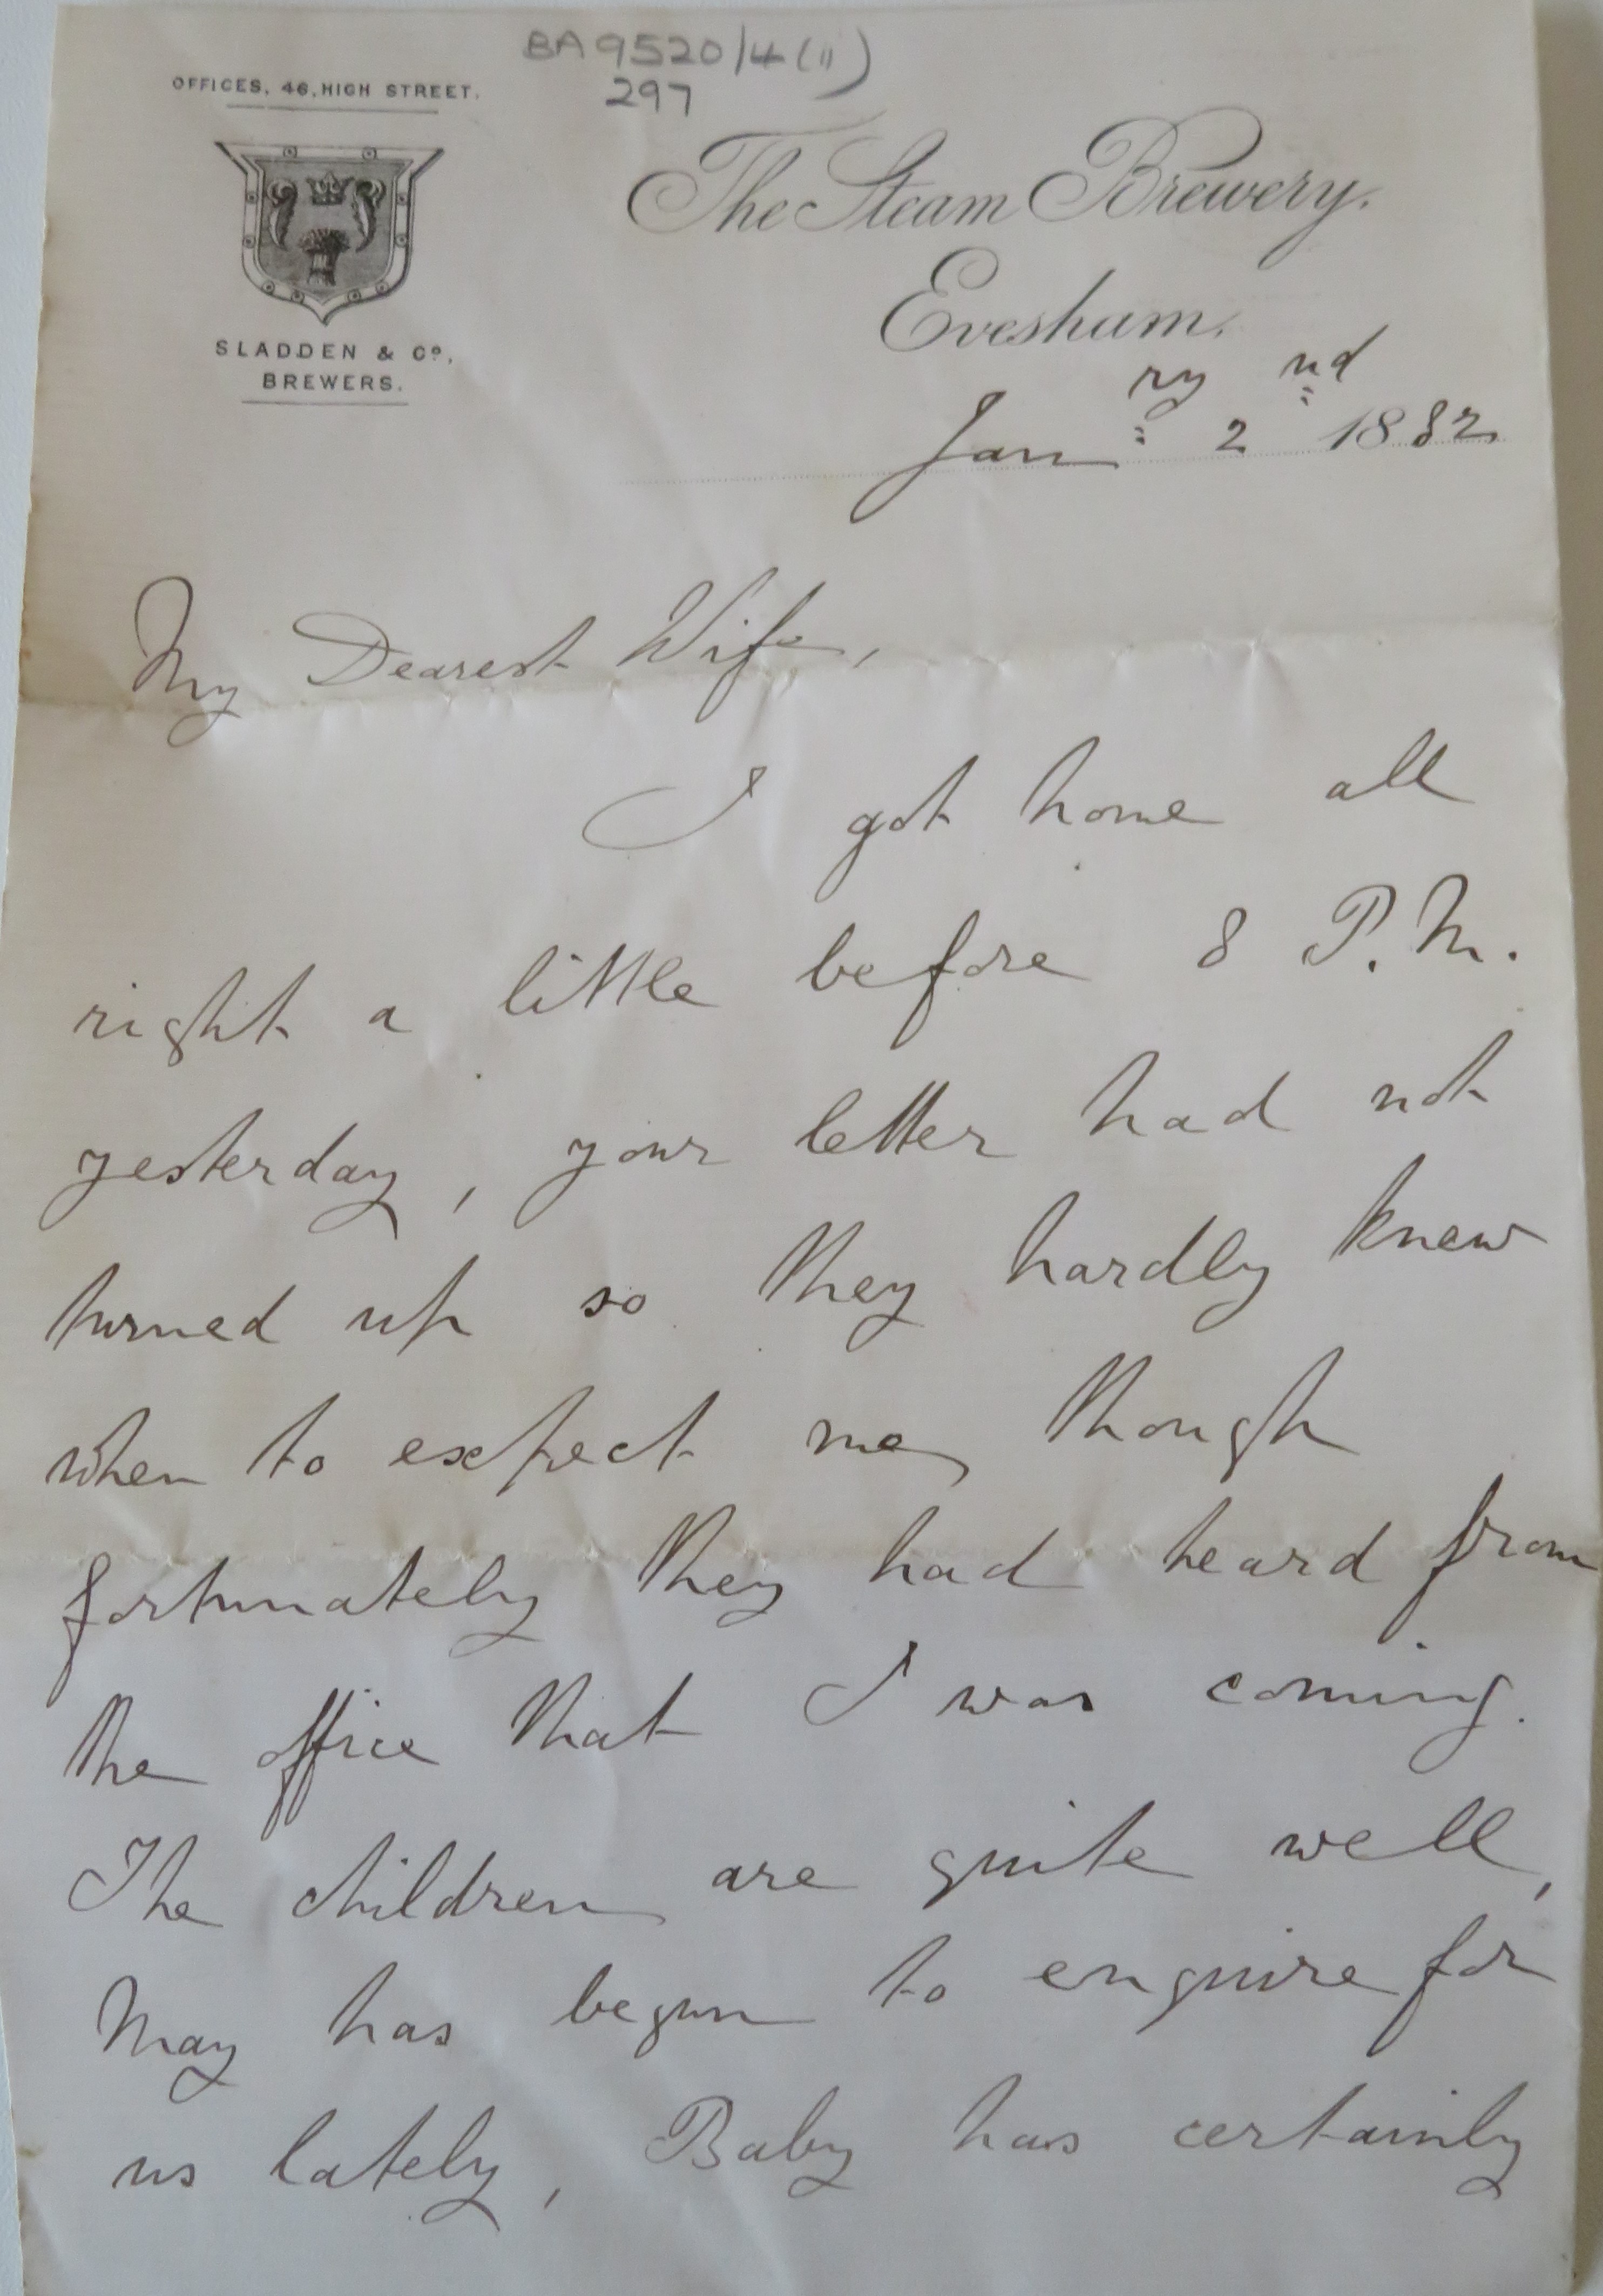 BA9520/4(ii)
297
OFFICES, 46, HIGH STREET.
The Steam Brewery.
Evesham.
SLADDEN & Co.,
BREWERS.
Janry 2nd 1882
My Dearest Wife,
I got home all
right a little before 8 P.M.
yesterday, your letter had not
turned up so they hardly knew
when to expect me, though
fortunately they had heard from
the office that I was coming.
The children are quite well,
May has begun to enquire for
us lately, Baby has certainly